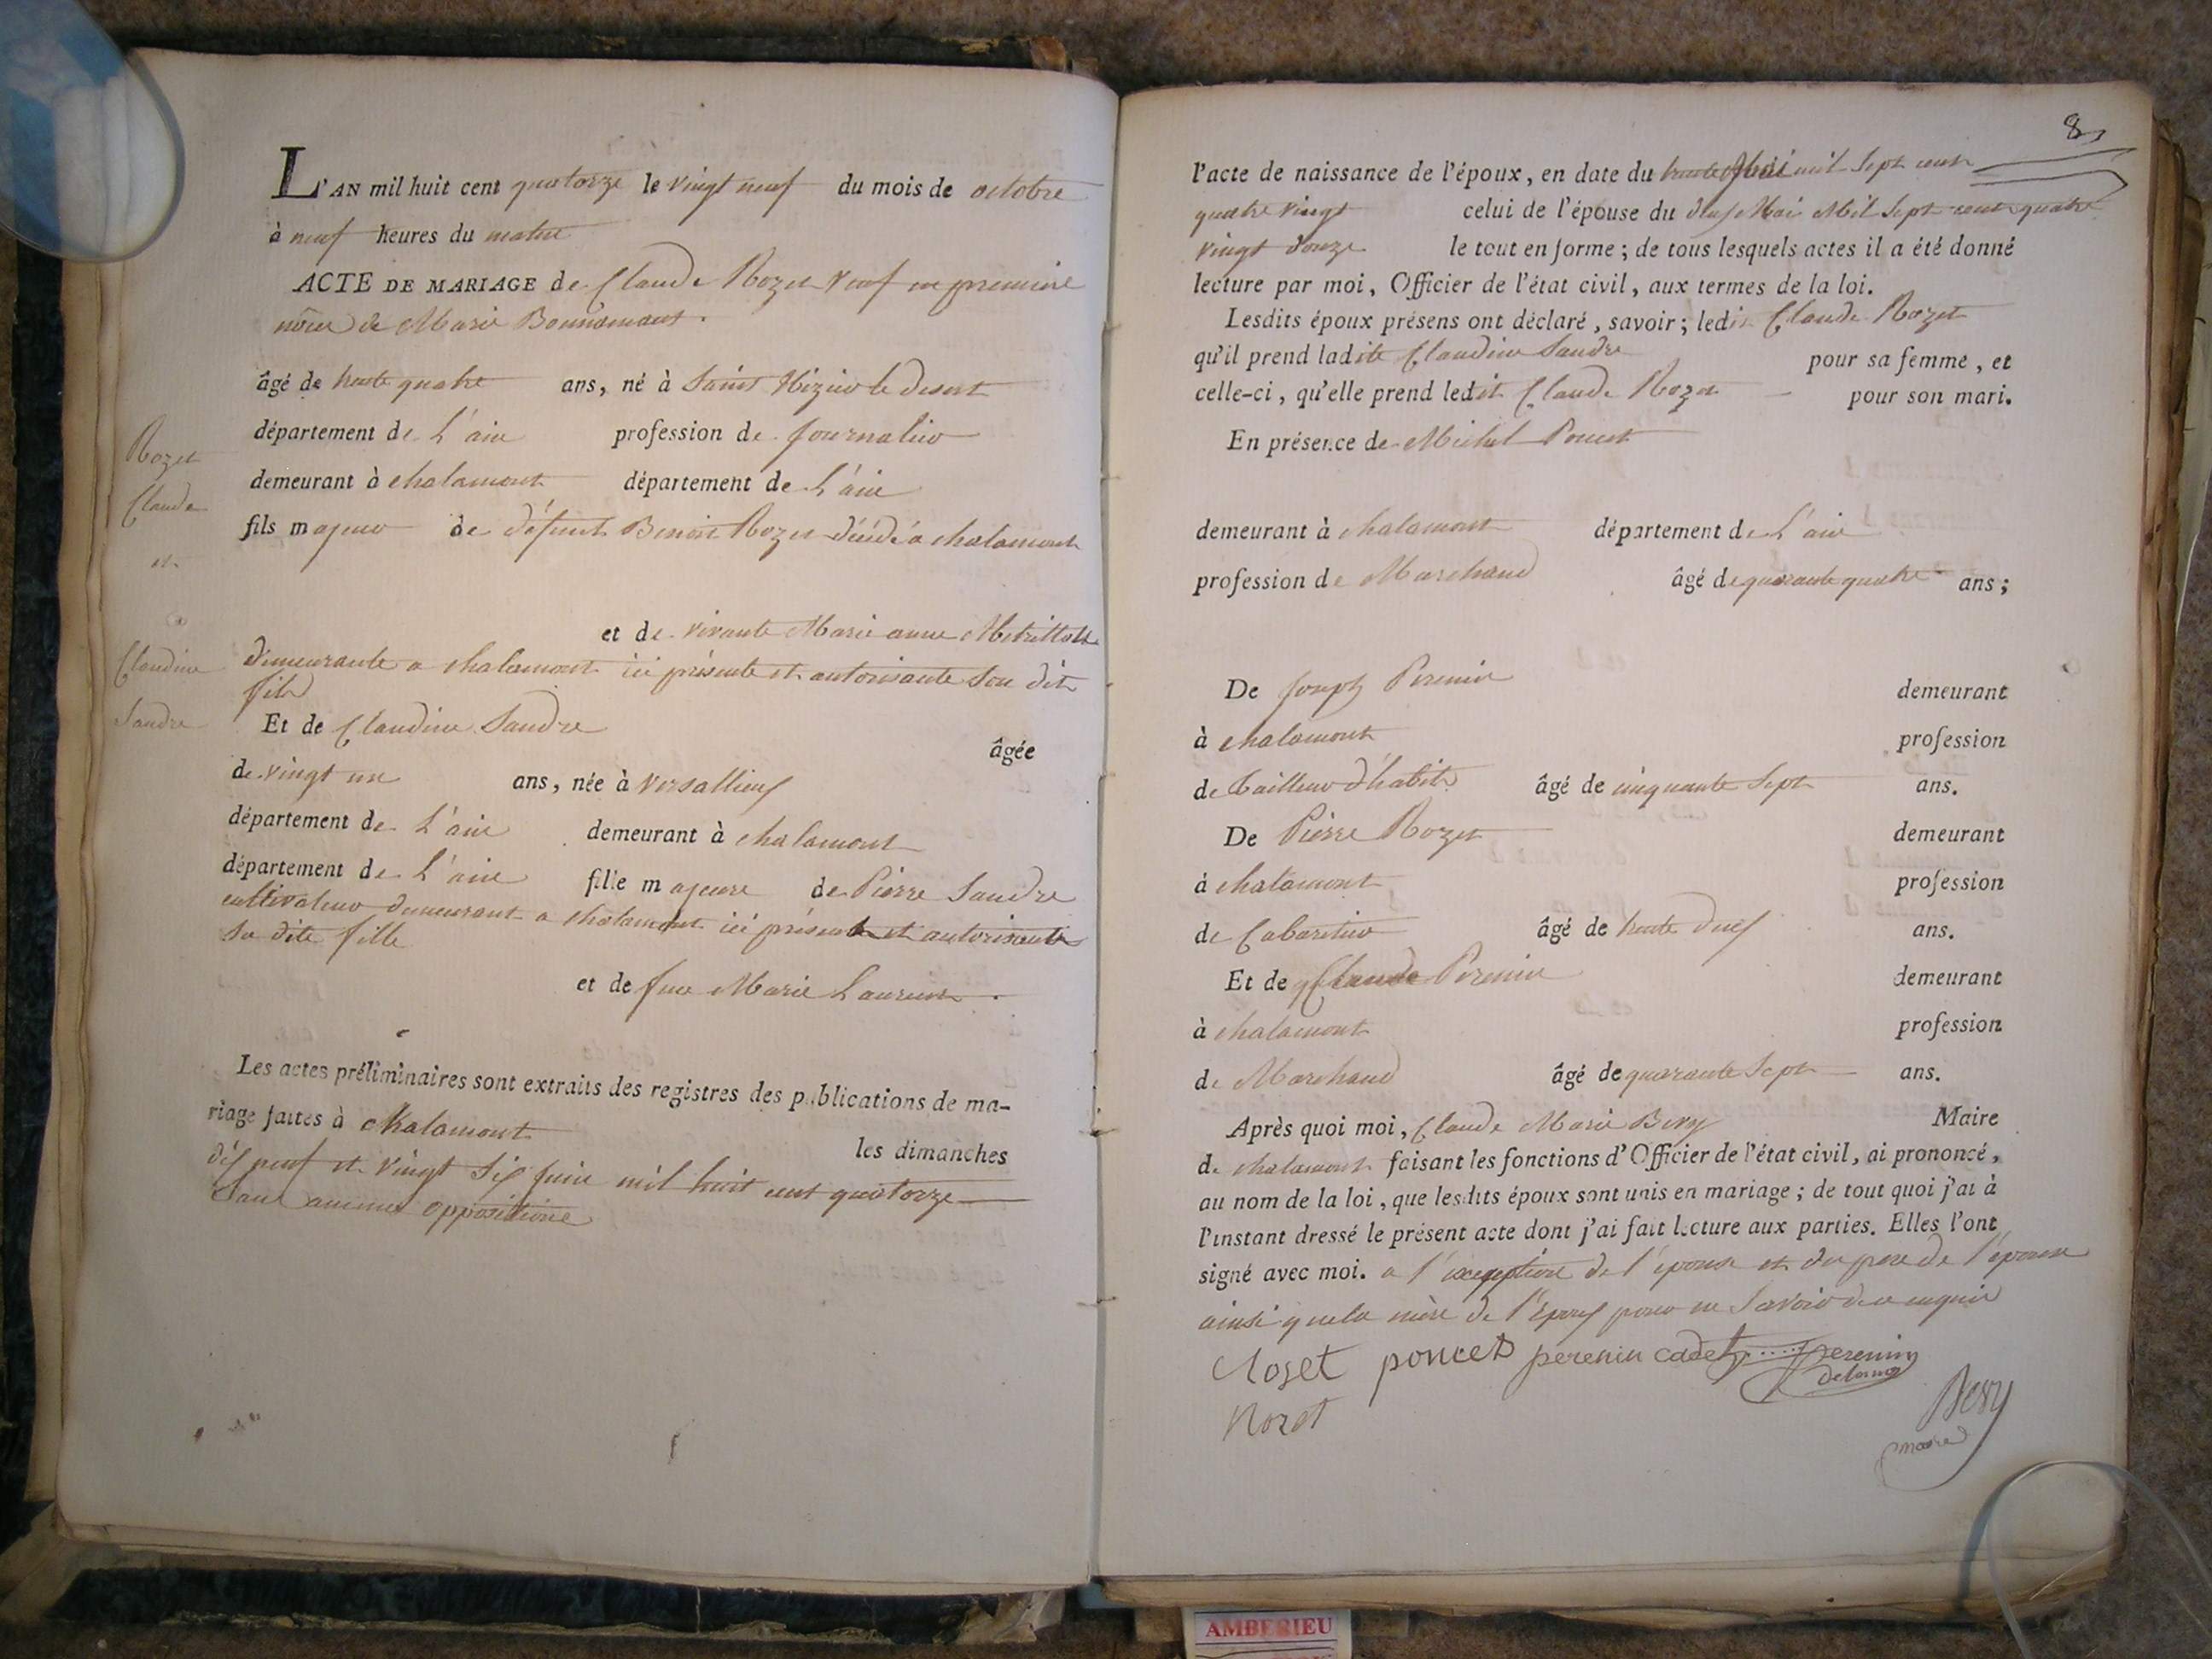 L'AN mil huit cent quatorze le vingt neuf du mois de octobre
à neuf heures du matin
ACTE DE MARIAGE de Claude Rozet veuf en premiere
de Marie Bonnamant.
âgé de trente quatre ans, né à Saint Nizier le desert
département de L'ain profession de Journalier
demeurant à chalamont département de L'ain
fils majeur de défunt Benoit Rozet décédé a chalamont
et de vivante Marie anne
demeurante a chalamont ici présente et autorisante son dit
fils
Et de Claudine Sandre âgée
de vingt un ans, née à versallieux
département de L'ain demeurant à chalamont
département de L'ain fille majeure de Pierre Sandre
cultivateur demeurant a chalamont ici présent et autorisant
sa dite fille
et de feue Marie Laurent.
Les actes préliminaires sont extraits des registres des publications de ma-
riage faites à chalamont les dimanches
dix neuf et vingt six juin mil huit cent quatorze
sans aucune opposition
Rozet
Claude
et
Claudine
Sandre
8
l'acte de naissance de l'époux, en date du trente mil sept cent
quatre vingt celui de l'épouse du deux Mai Mil sept cent quatre
vingt douze le tout en forme ; de tous lesquels actes il a été donné
lecture par moi, Officier de l'état civil, aux termes de la loi.
Lesdits époux présens ont déclaré, savoir ; ledit Claude Rozet
qu'il prend ladite Claudine Sandre pour sa femme, et
celle-ci, qu'elle prend ledit Claude Rozet pour son mari.
En présence de Michel Poncet
demeurant à chalamont département de L'ain
profession de Marchand âgé de quarante quatre ans ;
De Joseph Perenin demeurant
à chalamont profession
de Tailleur d'habits âgé de cinquante sept ans.
De Pierre Rozet demeurant
à chalamont profession
de Cabaretier âgé de trente deux ans.
Et de Claude Perenin demeurant
à chalamont profession
de Marchand âgé de quarante sept ans.
Après quoi moi, Claude Marie Bery Maire
de chalamont faisant les fonctions d'Officier de l'état civil, ai prononcé,
au nom de la loi, que lesdits époux sont unis en mariage ; de tout quoi j'ai à
l'instant dressé le présent acte dont j'ai fait lecture aux parties. Elles l'ont
signé avec moi. a l'exception de l'epouse et du pere de l'epouse
ainsi que la mère de l'Epoux pour ne savoir de ce enquis
Roset poncet perenin cadet perenin
Rozet
Bery
maire
AMBERIEU